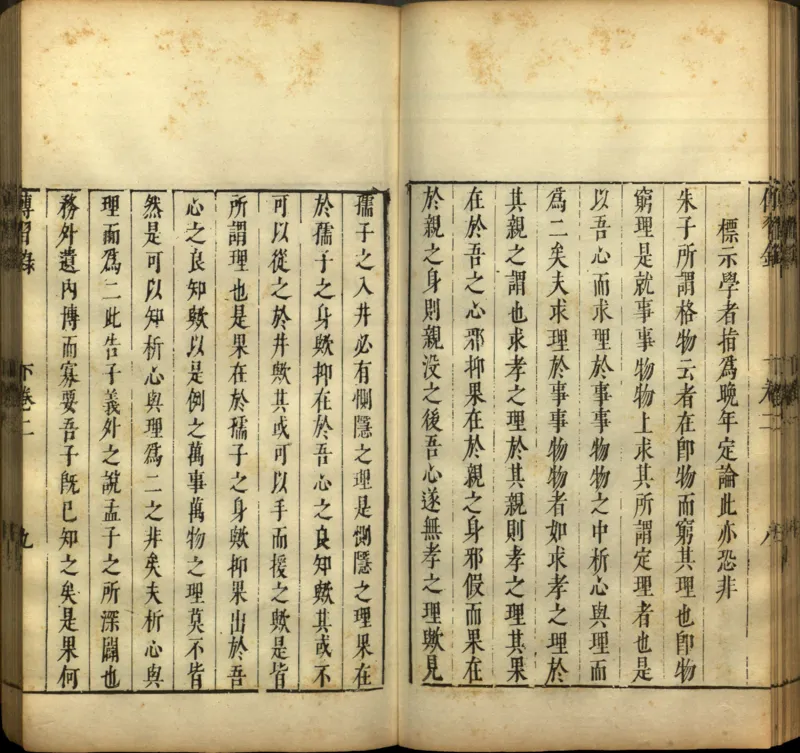 傳習錄 下卷二 八
標示學者指爲晚年定論此亦恐非
朱子所謂格物云者在卽物而窮其理也卽物
窮理是就事事物物上求其所謂定理者也是
以吾心而求理於事事物物之中析心與理而
爲二矣夫求理於事事物物者如求孝之理於
其親之謂也求孝之理於其親則孝之理其果
在於吾之心邪抑果在於親之身邪假而果在
於親之身則親没之後吾心遂無孝之理歟見
孺子之入井必有惻隱之理是惻隱之理果在
於孺子之身歟抑在於吾心之良知歟其或不
可以從之於井歟其或可以手而援之歟是皆
所謂理也是果在於孺子之身歟抑果出於吾
心之良知歟以是例之萬事萬物之理莫不皆
然是可以知析心與理爲二之非矣夫析心與
理而爲二此告子義外之說孟子之所深闢也
務外遺內博而寡要吾子旣已知之矣是果何
傳習錄 下卷二 九